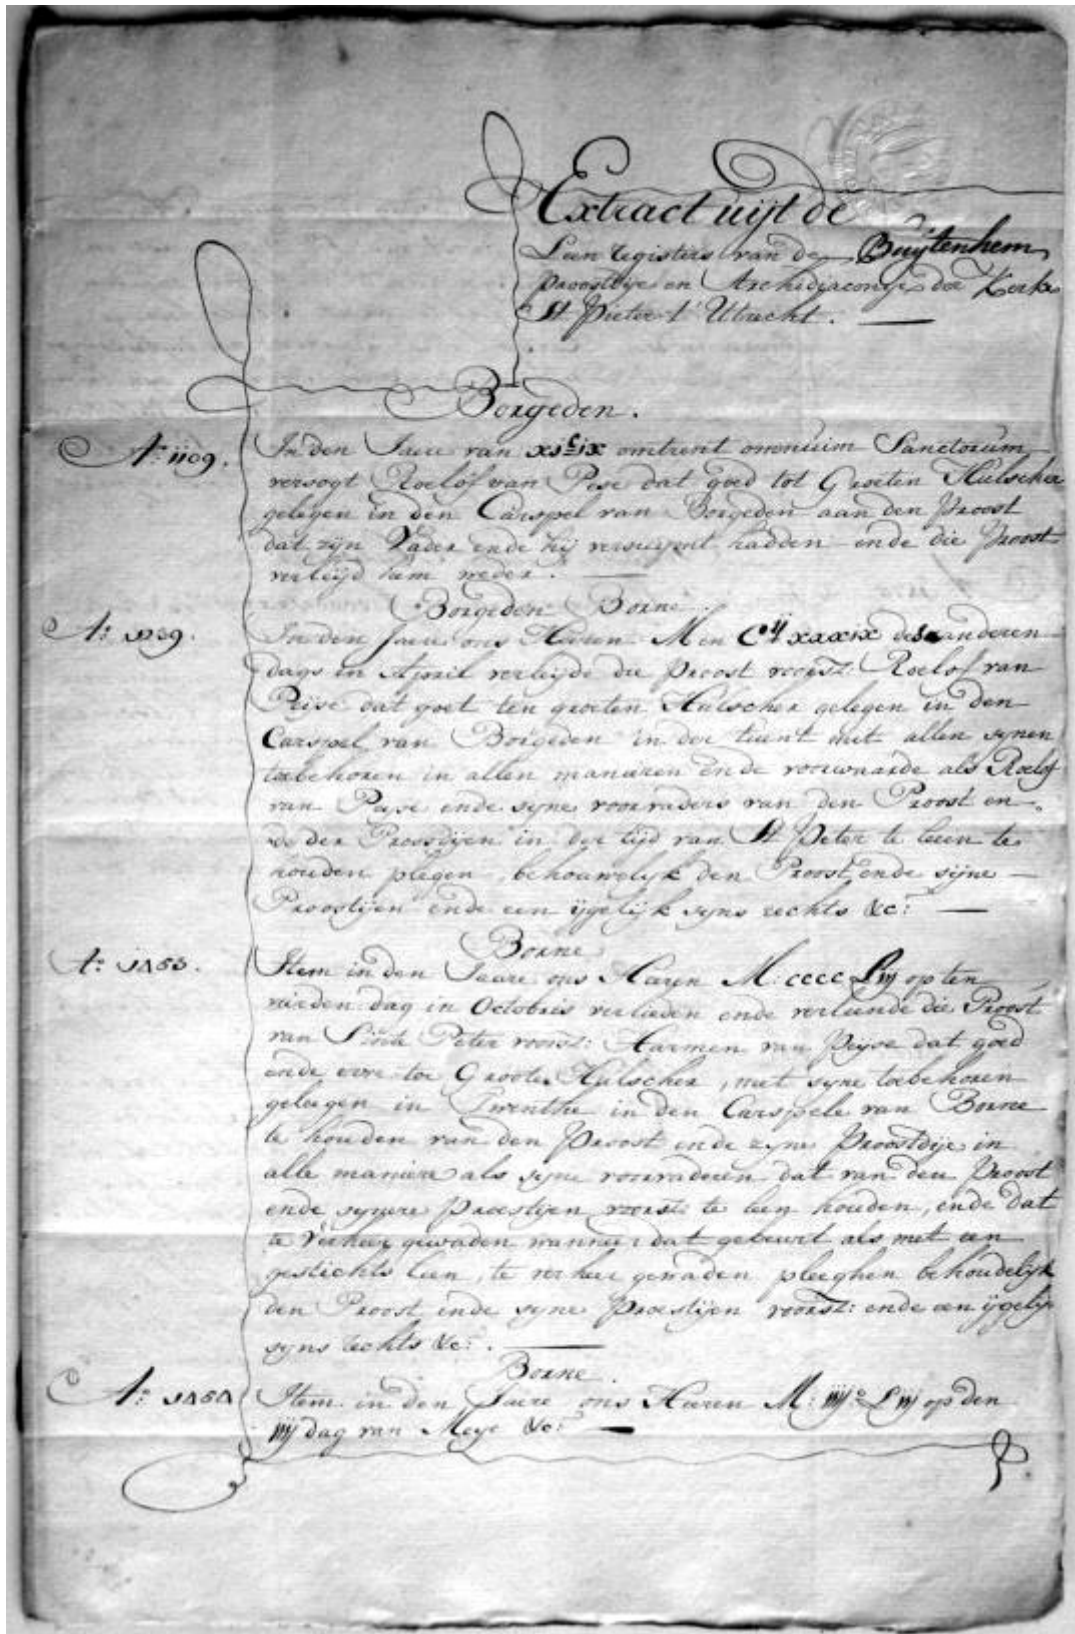 Extract uijt de
Leen registers van de Buijtenhem
proostdije en Archidiaconije der Kerke
St. Pieter t' Utrecht.
Borgeden.
Ao. 1109. In den Jaere van xicix omtrent omnium Sanctorum
versogt Roelof van Pese dat goed tot Groeten Hulscher
gelegen in den Carspel van Borgeden aan den Proost
dat zijn Vader ende hij versuijmt hadden ende die Proost
verleijd hem weder.
Borgeden Borne.
Ao. 1239. In den Jaere ons Heeren M en Cij xxxix des anderen
dags in April verleijde die Proost voorsz: Roelof van
Peijse dat goet ten groeten Hulscher gelegen in den
Carspel van Borgeden in der tuent met allen synen
toebehoren in allen manieren ende voorwaarde als Roelof
van Peyse ende syne voorvaders van den Proost en-
de der Proosdijen in der tijd van St Peter te leen te
houden plegen, behouwelijk den Proost ende sijne
Proostijen ende een ijgelijk syns rechts &c:
Borne
Ao. 1453. Item in den Jaare ons Heren M: cccc Liij op ten
vierden dag in Octobris verlieden ende verleende die Proost
van Sinte Peter voorsz: Harmen van Peijse dat goed
ende erve toe Groote Hulscher, met syne toebehoren
gelegen in Twenthe in den Carspele van Borne
te houden van den Proost ende zyne Proostdije in
alle maniere als syne voorvaderen dat van den Proost
ende synere Proestijen voorsz: te leen houden, ende dat
te verheer gewaden wanneer dat gebeurt als met een
gestichts leen, te verheer gewaden pleeghen behoudelijk
den Proost ende syne Proestijen voorsz: ende een ijgelijk
syns rechts &c:
Borne.
Ao. 1454 Item in den Jaere ons Heeren M: iiijc Liiij op den
iiij dag van Meye &c: